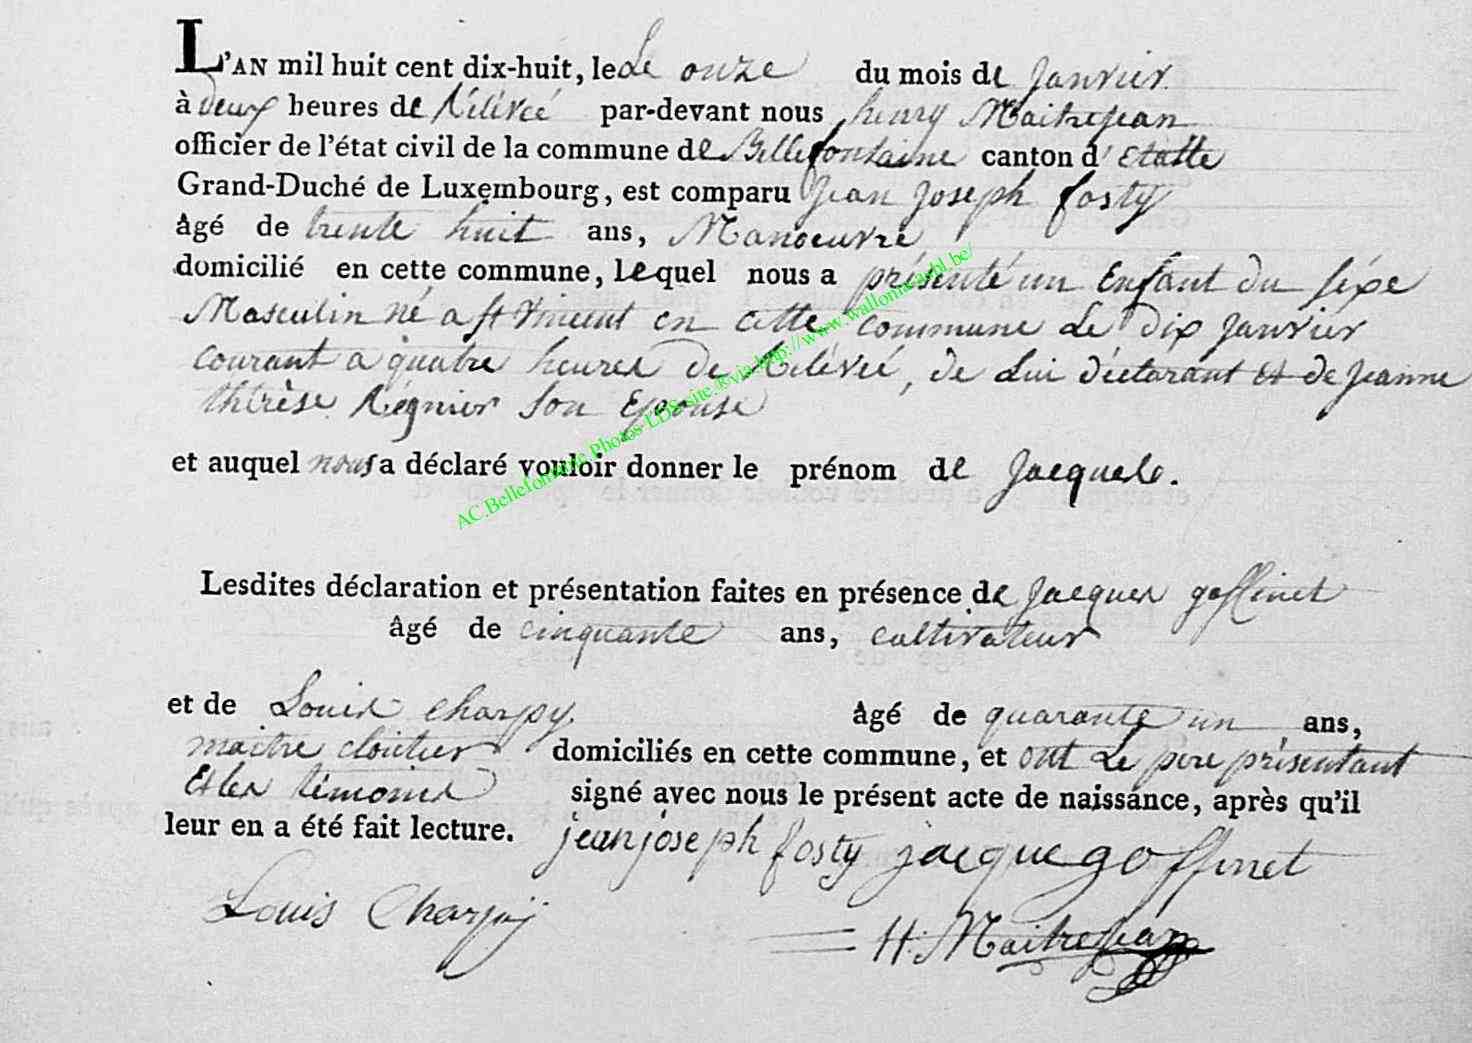 L'AN mil huit cent dix-huit, le Le onze du mois de Janvier
à deux heures de Rélévée par-devant nous henry Maitrejean
officier de l'état civil de la commune de Bellefontaine canton d'Etalle
Grand-Duché de Luxembourg, est comparu Jean Joseph fosty
âgé de trente huit ans, Manoeuvre
domicilié en cette commune, lequel nous a présenté un Enfant du séxe
Masculin né a st Vincent en cette commune Le dix Janvier
courant a quatre heures de Rélévée, de Lui déclarant et de jeanne
thérèse Régnier son Epouse
et auquel nous a déclaré vouloir donner le prénom de Jacques.
Lesdites déclaration et présentation faites en présence de Jacques goffinet
âgé de cinquante ans, cultivateur
et de Louis charpy. âgé de quarante un ans,
maitre cloutier domiciliés en cette commune, et ont Le pere présentant
Et les témoins signé avec nous le présent acte de naissance, après qu'il
leur en a été fait lecture. jean joseph fosty jacque goffinet
Louis Charpÿ
H: Maitrejean
AC.Bellefontaine Photos-LDS-site.®via http://www.wallonia-asbl.be/